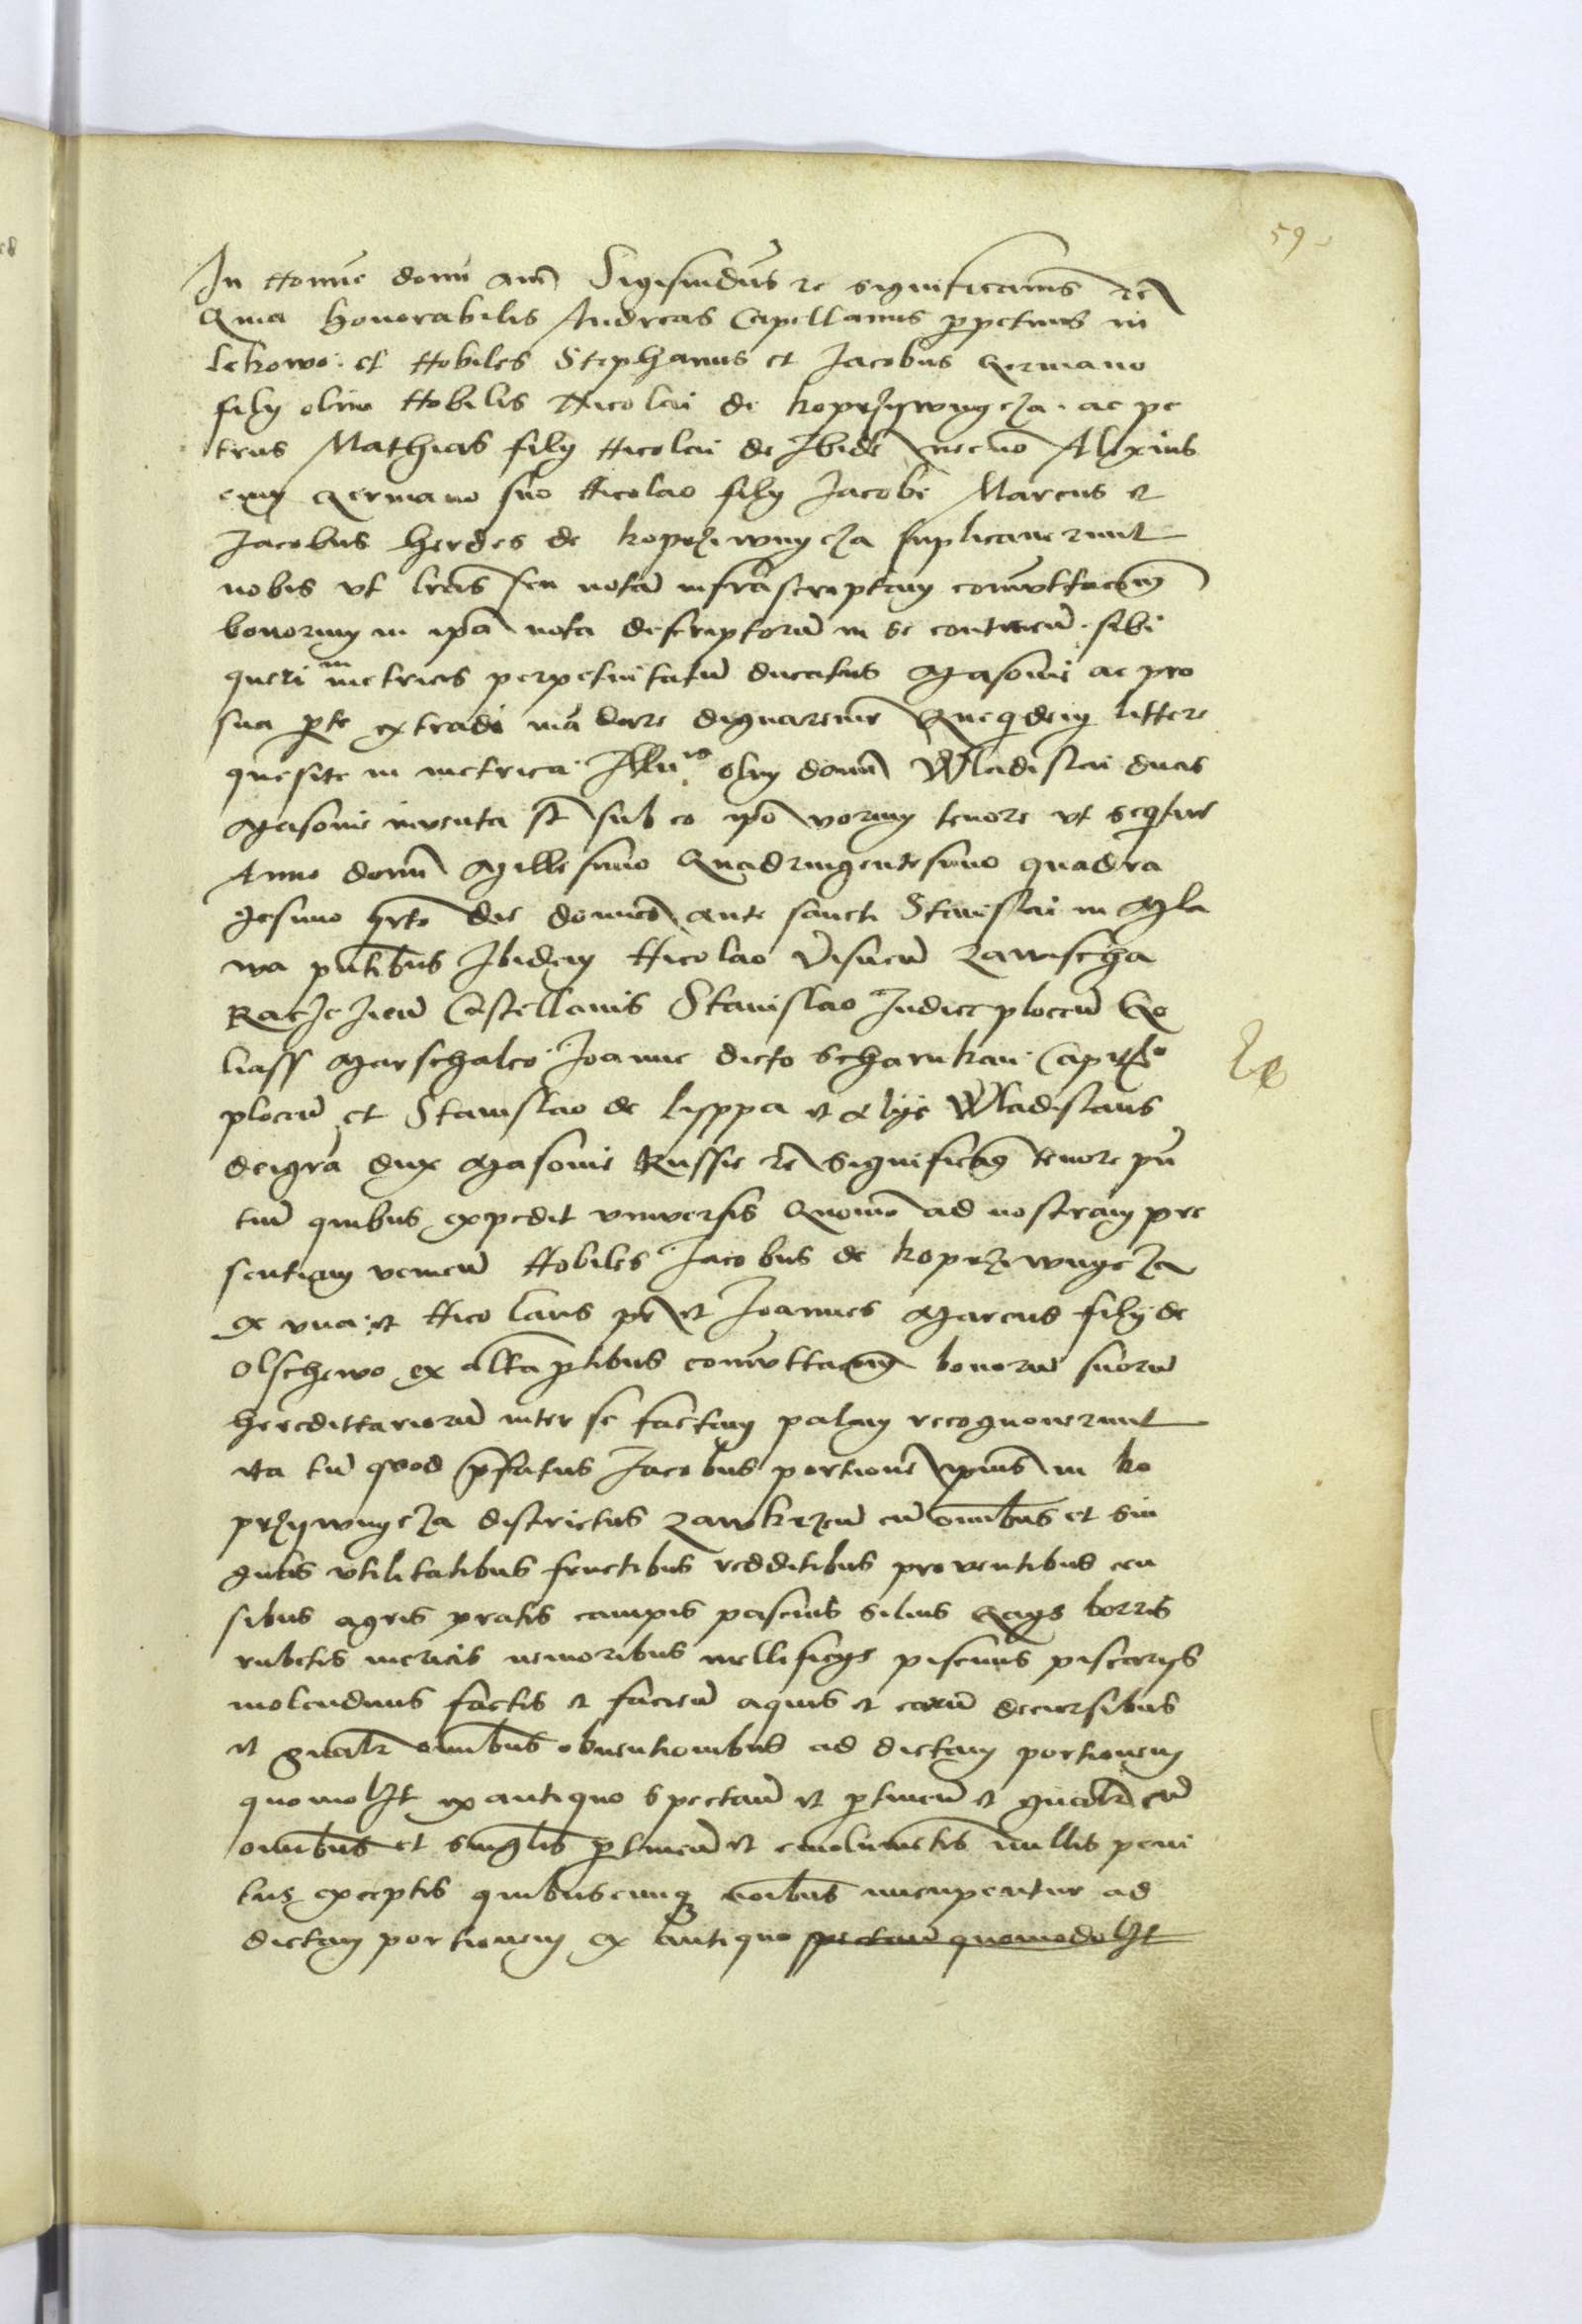 59
In Nomine domini amen Sigismudus etc significamus etc
Quia honorabilis Andreas Capellanus perpetuus in
lekowo et Nobiles Stephanus et Jacobus germano
filij olim Nobilis Nicolai de koprzywnycza ac pe
trus Mathias filij Nicolai de Ibidem necno Alexius
cum germano suo Nicolao filij Jacobi Marcus et
Jacobus herdes de koprziwnycza suplicaverunt
nobis vt lras seu notam infrascriptam comuttacom
bonorum in ipsa nota descriptoru in se continen. sibi
queri in metricis perpetuitatum ducatus Masovie ac pro
sua parte extradi mandare dignaremur Queqdem littere
quesite in metrica Illu olim domini Wladislai ducis
Masovie inventa st sub eo ipso verborum tenore vt sequitur
Anno domini Millesimo Quadringentesimo quadra
gesimo die dominico ante sancti Stanislai in Mla
wa pntibus Ibidem Nicolao Visnen Zawischa
Raczczien Castellanis Stanislao Judice plocen Go
liass Marschalco Joanne dicto scharnkau Capitaneo
plocen et Stanislao de lisppa et alijs Wladislaus
dei gra dux Masovie Russie etc Significam tenore pn
tium quibus expedit vniversis Quomo ad nostram pre
sentiam venien Nobiles Jacobus de koprziwnycza
ex vna et Nicolaus pr et Joannes Marcus filij de
Olschewo ex alta ptibus comuttacom bonoru suoru
heredittarioru inter se factam palam recognoverunt
ita tn quod prefatus Jacobus portione ipius in ko
przywnycza districtus Zawkrzen cu omibus et sin
gulis vtilitatibus fructibus redditibus proventibus cen
sibus agris pratis campis pascuis siluis Gays borris
rubetis mericis nemoribus mellificijs piscinis piscarijs
molendinis factis et facien aquis et earu decursibus
et gnalr omibus obventionibus ad dictam portionem
quomolibet ex antiquo spectan et ptinen et gnalr cu
omibus et singlis ptinen et emolumetis nullis peni
tus exceptis quibuscunq noibus nuncupentur ad
dictam portionem ex antiquo spectan quomodolibet